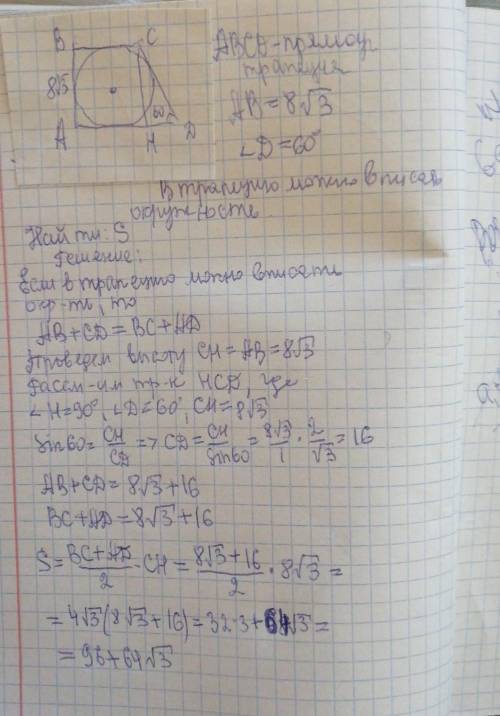 B C
8√3
60°
A H D
ABCD - прямоуг.
трапеция
AB = 8√3
∠D = 60°
В трапецию можно вписать
окружность.
Найти: S
Решение:
Если в трапецию можно вписать
окр-ть, то
AB + CD = BC + AD
Проведём высоту CH = AB = 8√3
Рассм-им тр-к HCD, где
∠H = 90°, ∠D = 60°, CH = 8√3
Sin60 = CH/CD => CD = CH/Sin60 = 8√3/1 · 2/√3 = 16
AB + CD = 8√3 + 16
BC + AD = 8√3 + 16
S = (BC + AD)/2 · CH = (8√3 + 16)/2 · 8√3 =
= 4√3(8√3 + 16) = 32·3 + 64√3 =
= 96 + 64√3